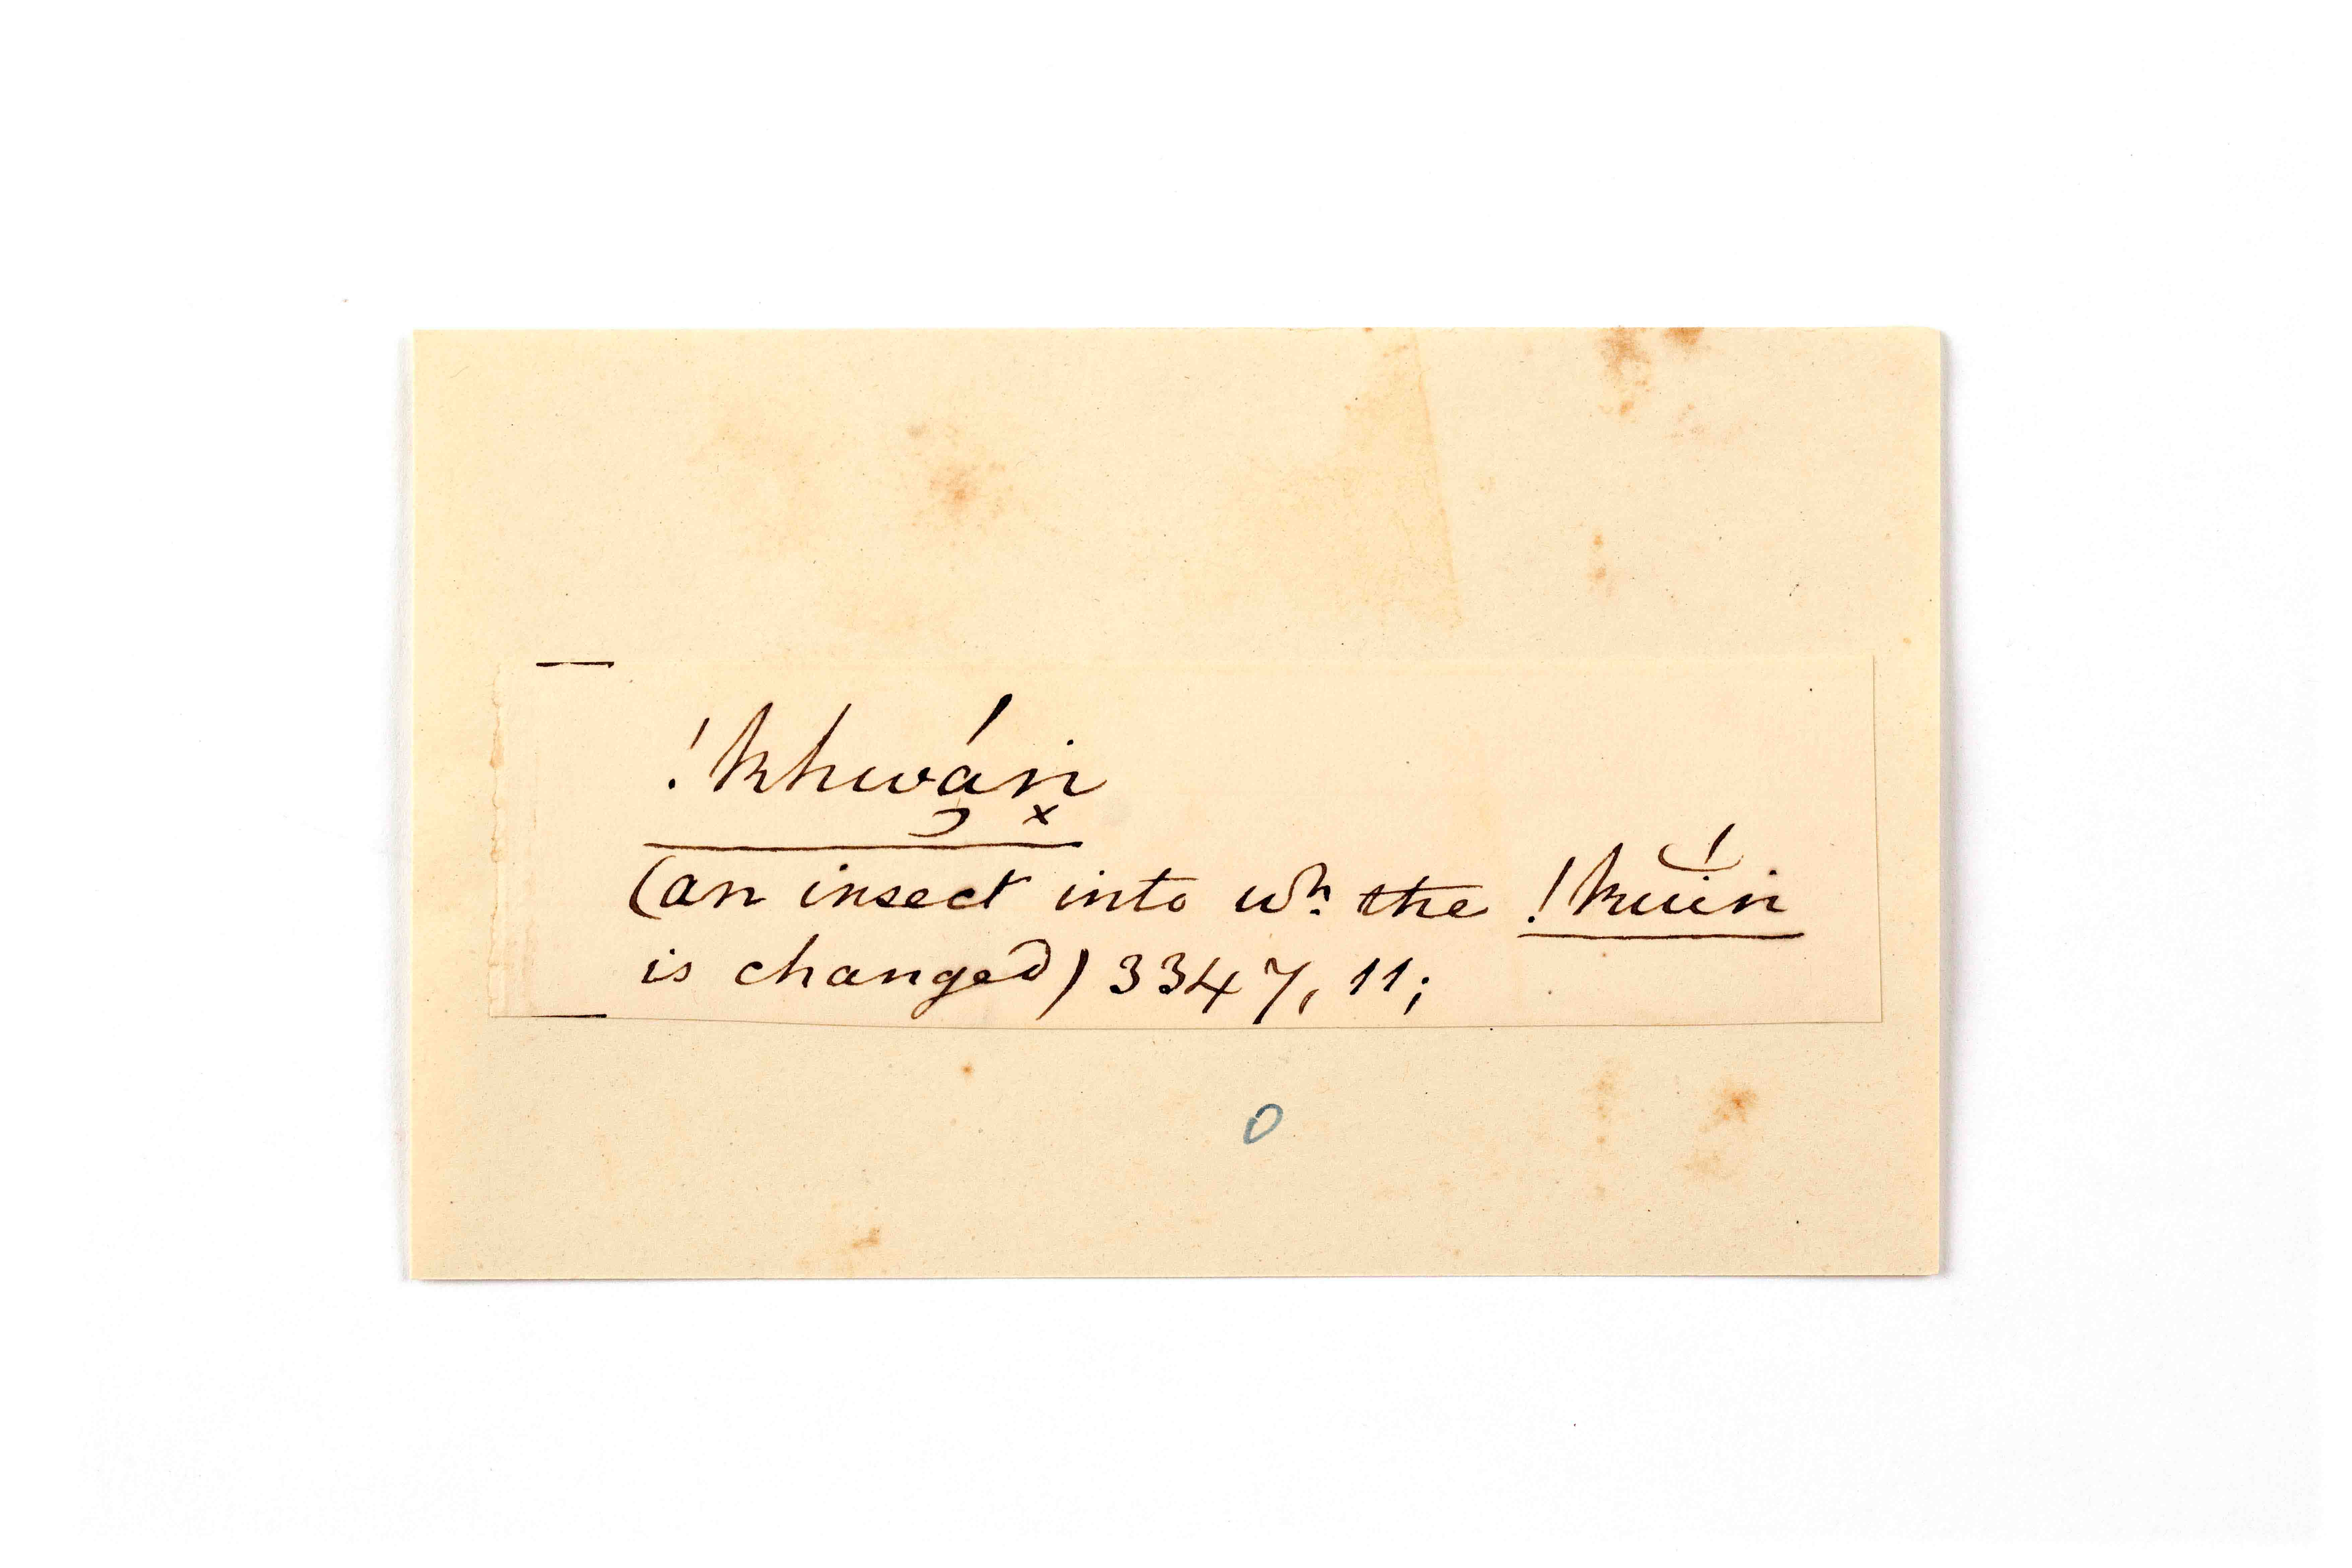 !khwá̠ṅ
(an insect into wh. the !kuïń
is changed) 3347, 11;
0